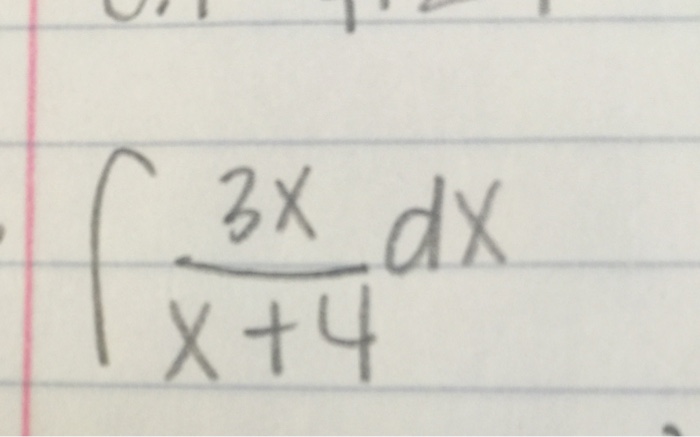 ∫ 3x/(x+4) dx